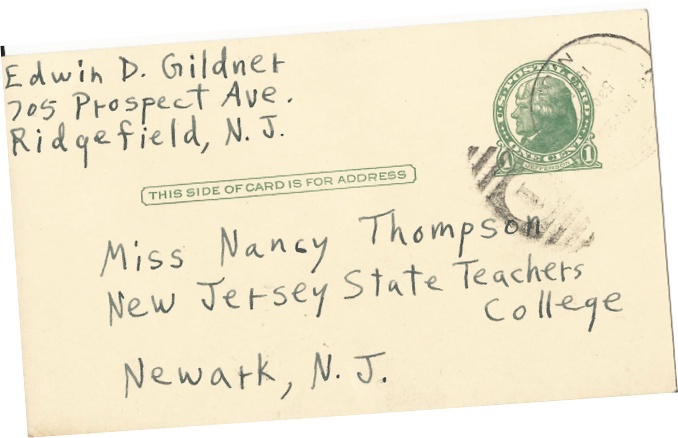 Edwin D. Gildner
705 Prospect Ave.
Ridgefield, N.J.
U.S. POSTAL CARD
ONE CENT
1
1
JEFFERSON
THIS SIDE OF CARD IS FOR ADDRESS
Miss Nancy Thompson
New Jersey State Teachers
College
Newark, N.J.